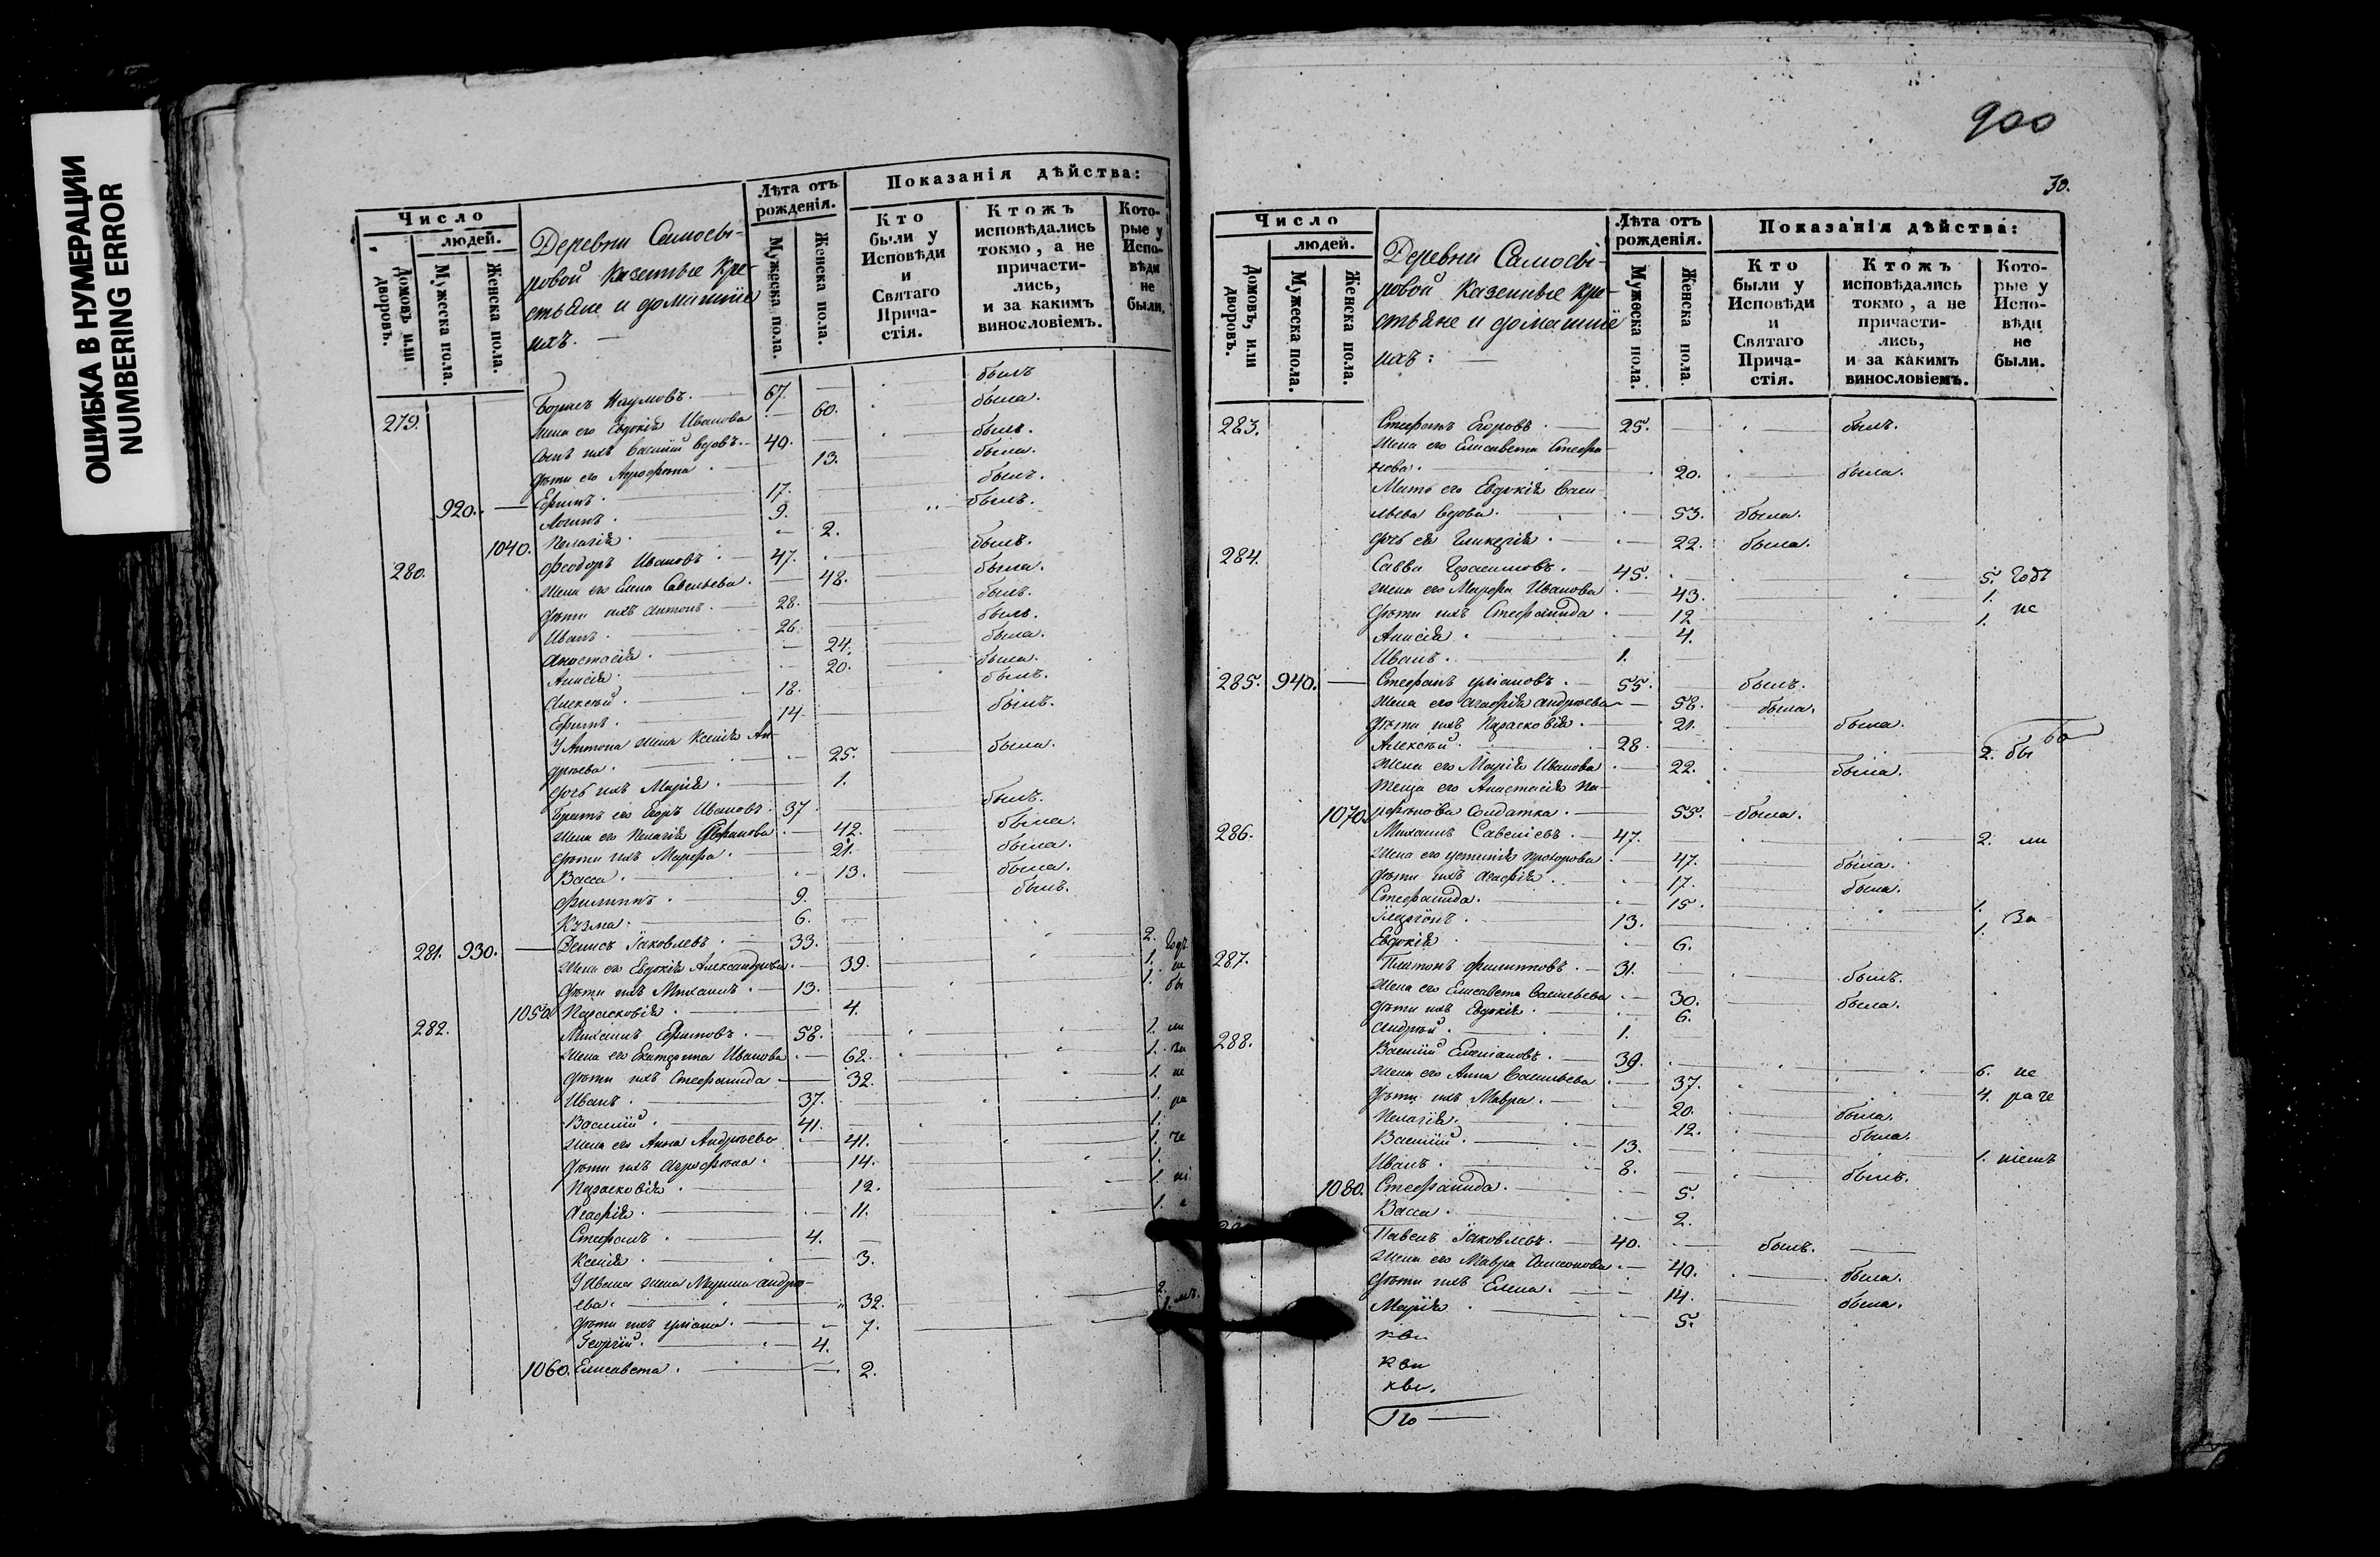 ОШИБКА В НУМЕРАЦИИ
NUMBERING ERROR
Число
людей.
Домовъ или дворовъ.
Мужеска пола.
Женска пола.
Деревни Самосы-
ровой Казенные Кре-
стьяне и домашніе
ихъ. —
Лѣта отъ рожденія.
Мужеска пола.
Женска пола.
Показанія дѣйства:
Кто были у Исповѣди и Святаго Прича-стія.
Ктожъ исповѣдались токмо, а не причасти-лись, и за какимъ винословіемъ.
Кото-рые у Испо-вѣди не были.
279. Борисъ Наумовъ. 67. былъ
Жена его Евдокія Иванова 60. была.
Сынъ ихъ Василій вдовъ. 40. былъ.
дѣти его Агрофена 13. была.
920. Ефимъ. 17. былъ.
Логинъ. 9. былъ.
1040. Пелагія. 2.
280. Феодоръ Ивановъ. 47. былъ.
Жена его Елена Савельева. 48. была.
дѣти ихъ Антонъ. 28. былъ.
Иванъ. 26. былъ.
Анастасія. 24. была.
Анисія. 20. была.
Алексѣй. 18. былъ.
Ефимъ. 14. былъ.
У Антона жена Ксенія Ан-
дреева. 25. была.
дочь ихъ Марія. 1.
Братъ его Егоръ Ивановъ. 37. былъ.
Жена его Пелагія 42. была.
дѣти ихъ Марфа. 21. была.
Васса. 13. была.
Филиппъ. 9. былъ.
Кузма. 6.
281. 930. Денисъ Іаковлевъ. 33. 2. Годъ
Жена его Евдокія Александрова. 39. 1. не
дѣти ихъ Михаилъ. 13. 1. бы
1050 Парасковія. 4.
282. Михаилъ Ефимовъ. 58. 1. ли
Жена его Екатерина Иванова. 62. 1. за
дѣти ихъ Стефанида 32. 1. не
Иванъ. 37. 1. ра
Василій. 41. 1.
Жена его Анна Андреева 41. 1. че
дѣти ихъ Агрофена. 14. 1.
Парасковія. 12. 1. ні
Агафія. 11. 1. е
Стефанъ. 4.
Ксенія. 3.
У Ивана жена Марина андре-
ева. 32. 2.
дѣти ихъ уліана. 7. 1. мъ.
Георгій. 4.
1060. Елисавета. 2.
900
30.
Число
людей.
Домовъ, или дворовъ.
Мужеска пола.
Женска пола.
Деревни Самосы-
ровой Казенные Кре-
стьяне и домашніе
ихъ: —
Лѣта отъ рожденія.
Мужеска пола.
Женска пола.
Показанія дѣйства:
Кто были у Исповѣди и Святаго Прича-стія.
Ктожъ исповѣдались токмо, а не причасти-лись, и за какимъ винословіемъ.
Кото-рые у Испо-вѣди не были.
283. Стефанъ Егоровъ. 25. былъ.
Жена его Елисавета Стефа-
нова. 20. была.
Мать его Евдокія Васи-
льева вдова. 53. была.
дочь ея Гликерія. 22. была.
284. Савва Герасимовъ. 45. 5. Годъ
Жена его Марфа Иванова 43. 1.
дѣти ихъ Стефанида 12 1. не
Анисія. 4.
Иванъ. 1.
285. 940. Стефанъ уліановъ. 55. былъ.
Жена его Агафія андреева 58. была.
дѣти ихъ Парасковія. 21. была.
Алексѣй. 28. 2. бы
Жена его Марія Иванова 22. была.
Теща его Анастасія Па-
рфенова Солдатка. 55. была.
1070.
286. Михаилъ Савеліевъ. 47. 2. ли
Жена его устинія прохорова 47. была.
дѣти ихъ Агафія. 17. была.
Стефанида. 15. 1.
Иларіонъ. 13. 1. За
Евдокія 6.
287. Платонъ филипповъ. 31. былъ.
Жена его Елисавета Васильева 30. была.
дѣти ихъ Евдокія. 6.
андрей. 1.
288. Василій Емеліановъ. 39. 6. не
Жена его Анна Васильева 37. 4. раче
дѣти ихъ Мавра. 20. была.
Пелагія. 12. была.
Василій. 13. 1. ніемъ
Иванъ. 8. былъ.
1080. Стефанида. 5.
Васса. 2.
Павелъ Іаковлевъ. 40. былъ.
Жена его Мавра 40. была.
дѣти ихъ Елена. 14. была.
Марія 5.